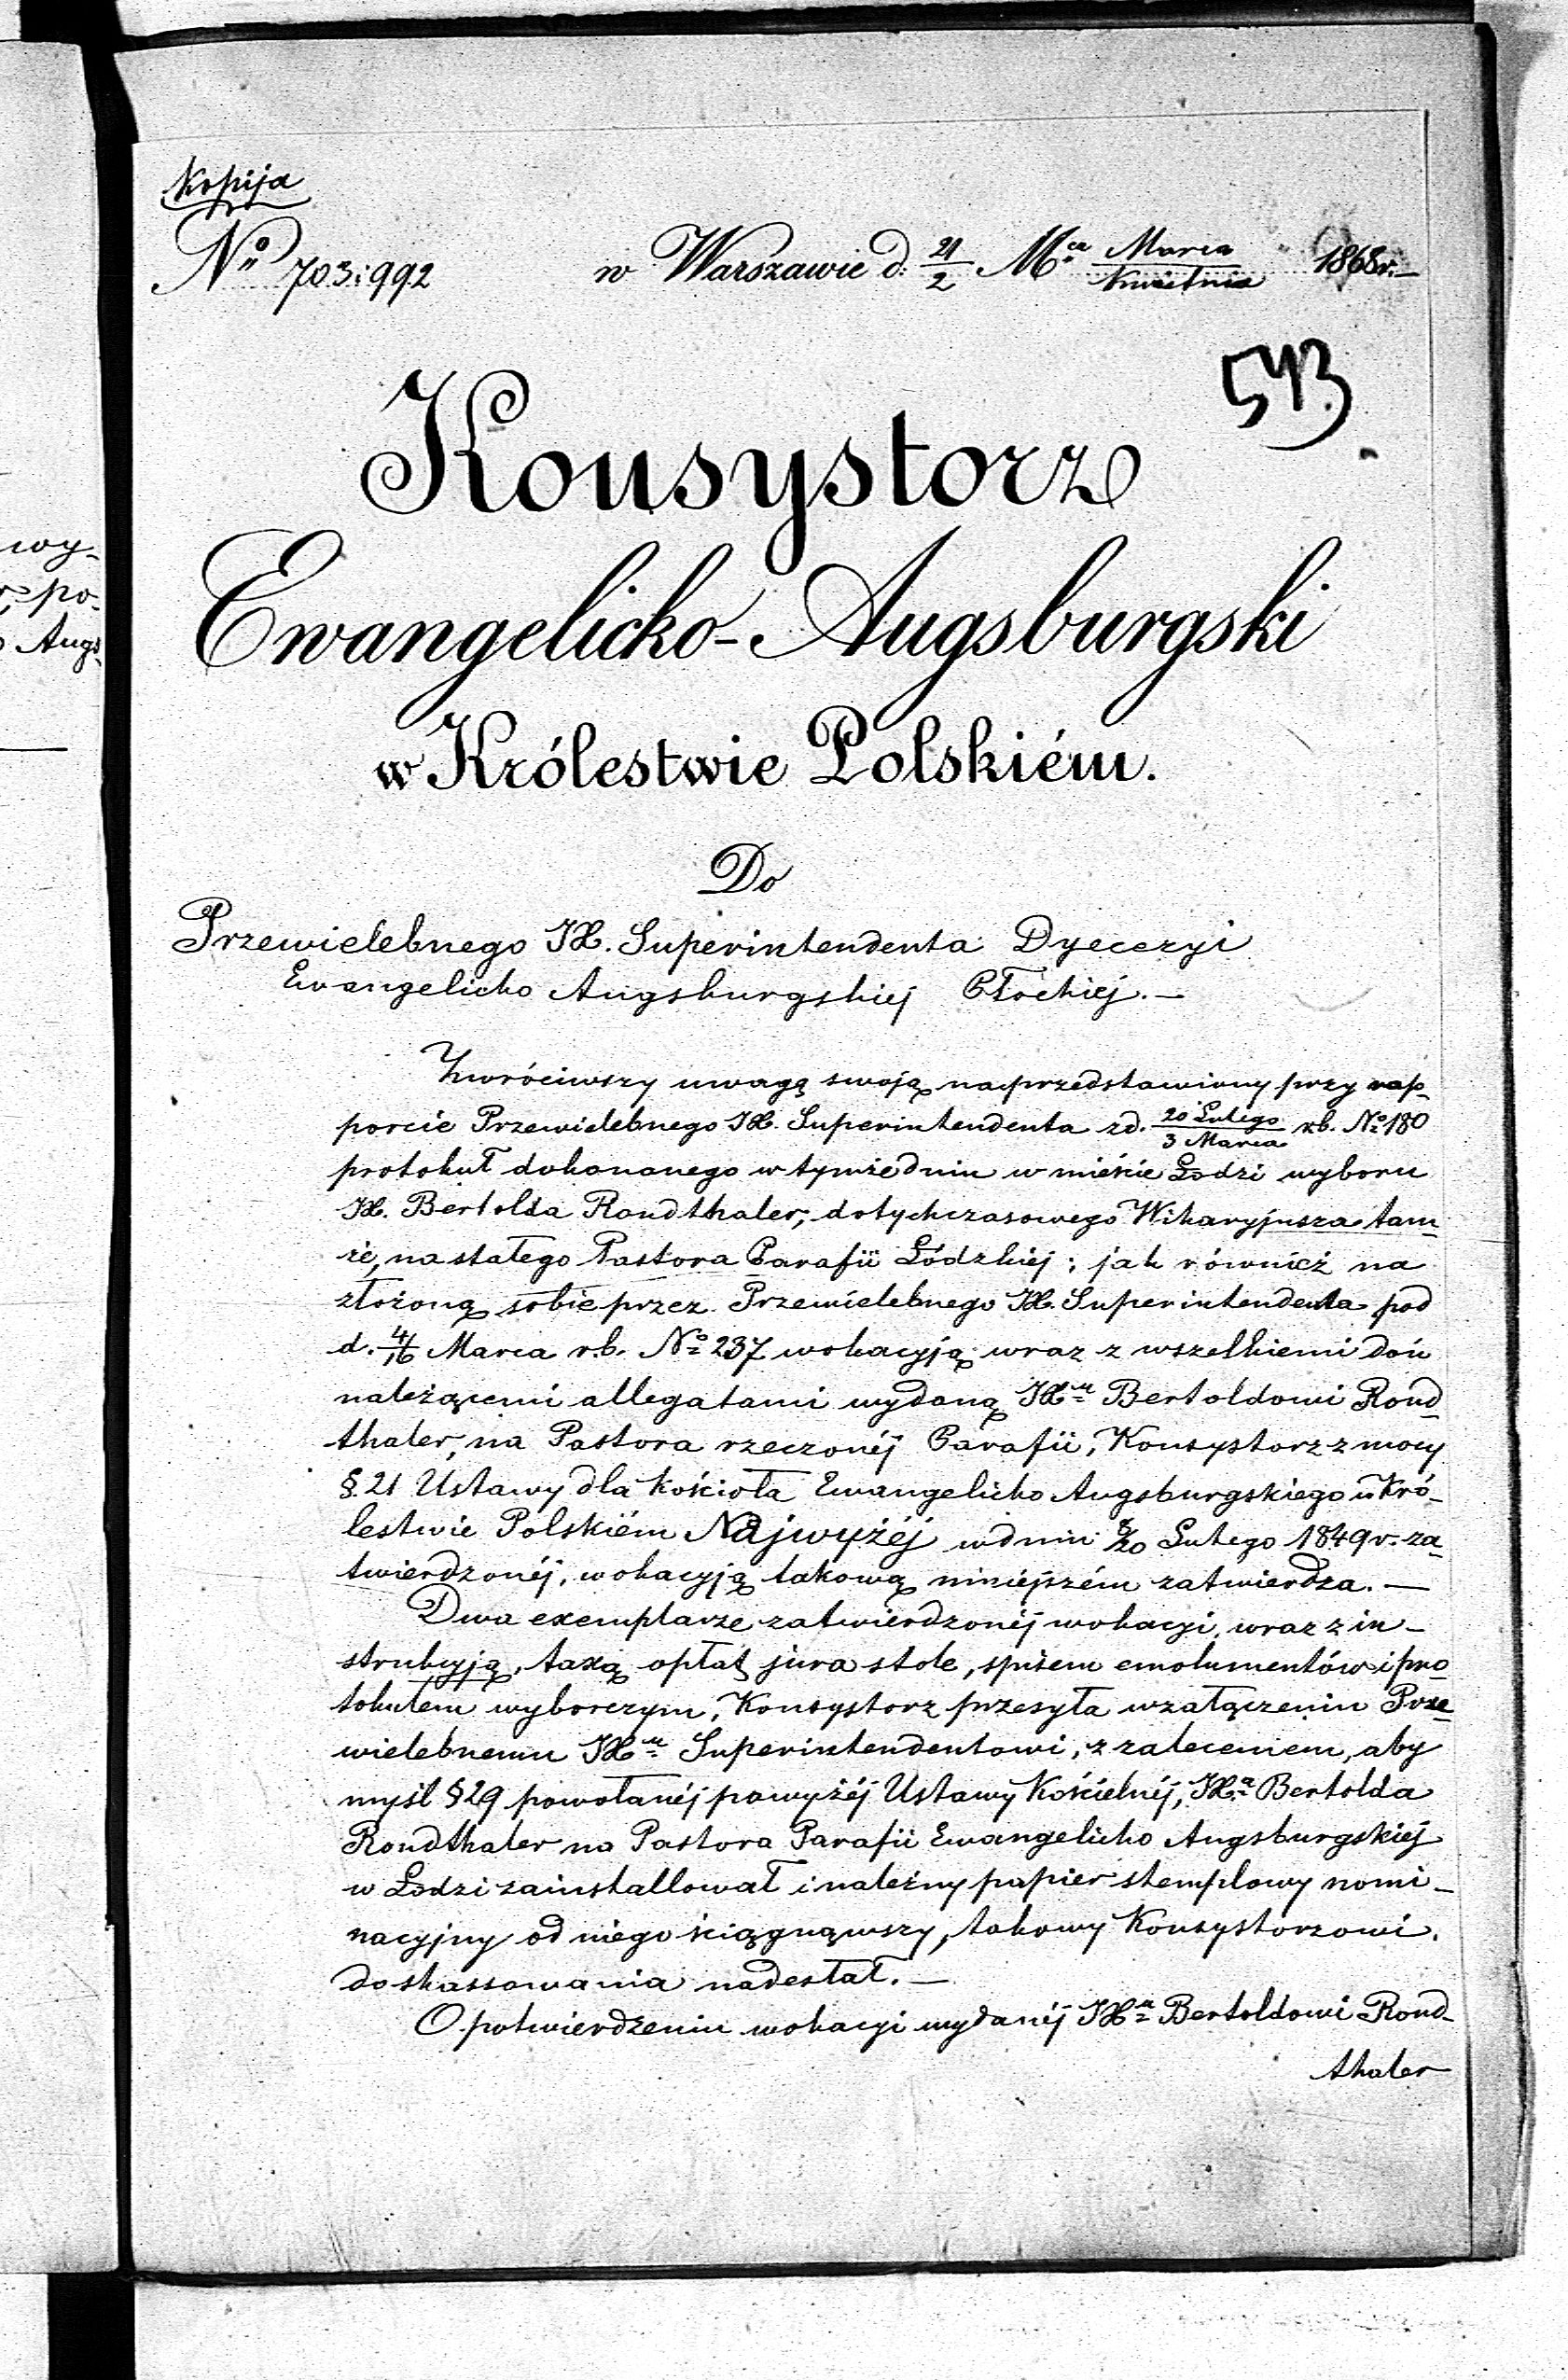 wy-
po-
Augs-
Kopija
No 703:992
w Warszawie d: 21/2 Mca Marca/Kwietnia 1868 r.—
543.
Konsystorz
Ewangelicko-Augsburgski
w Królestwie Polskiém.
Do
Przewielebnego JX. Superintendenta Dyecezyi
Ewangelicko Augsburgskiej Płockiej.—
Zwróciwszy uwagę swoją na przedstawiony przy rap-
porcie Przewielebnego JX. Superintendenta z d. 20 Lutego/3 Marca r.b. No 180
protokuł dokonanego w tymże dniu w mieście Łodzi wyboru
JX. Bertolda Rondthaler, dotychczasowego Wikaryjusza tam-
że, na stałego Pastora Parafii Łódzkiej; jak również na
złożoną sobie przez Przewielebnego JX. Superintendenta pod
d. 4/16 Marca r.b. No 237 wokacyją wraz z wszelkiemi doń
należącemi allegatami wydaną JXu Bertoldowi Rond-
thaler, na Pastora rzeczonéj Parafii, Konsystorz z mocy
§.21 Ustawy dla Kościoła Ewangelicko Augsburgskiego w Kró-
lestwie Polskiém Najwyżéj w dniu 8/20 Lutego 1849 r. za-
twierdzonéj, wokacyją takową niniejszém zatwierdza.—
Dwa exemplarze zatwierdzonéj wokacyi, wraz z in-
strukcyją, taxą opłat jura stole, spisem emolumentów i pro-
tokułem wyborczym, Konsystorz przesyła w załączeniu Prze-
wielebnemu JXu Superintendentowi, z zaleceniem, aby
myśl §29 powołanéj powyżéj Ustawy Kościelnéj, JXa Bertolda
Rondthaler na Pastora Parafii Ewangelicko Augsburgskiej
w Łodzi zainstallował i należny papier stemplowy nomi-
nacyjny od niego ściągnąwszy, takowy Konsystorzowi
do skassowania nadesłał.—
O potwierdzeniu wokacyi wydanéj JXu Bertoldowi Rond-
thaler